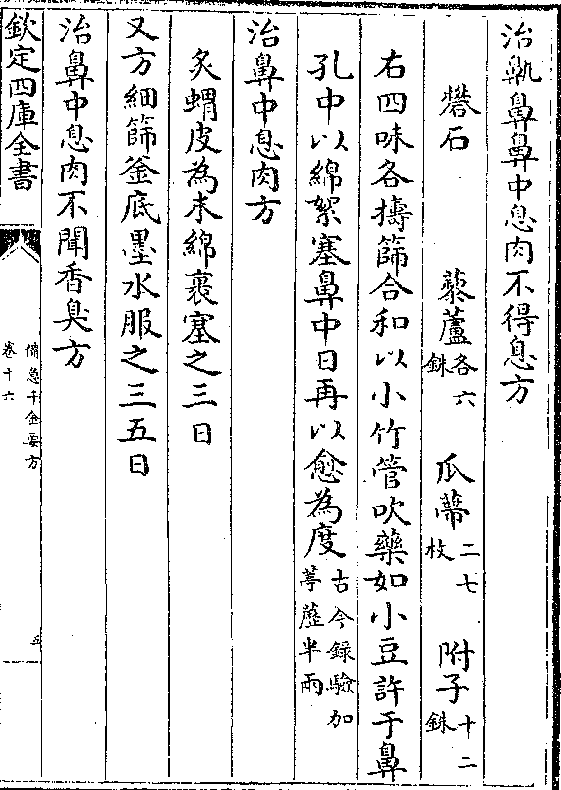 治鼽鼻鼻中息肉不得息方
礬石　藜蘆各六銖　瓜蔕二七枚　附子十二銖
右四味各擣篩合和以小竹管吹藥如小豆許于鼻
孔中以綿絮塞鼻中日再以愈為度古今録驗加葶藶半兩
治鼻中息肉方
炙蝟皮為末綿裹塞之三日
又方細篩釜底墨水服之三五日
治鼻中息肉不聞香臭方
欽定四庫全書
備急千金要方
卷十六